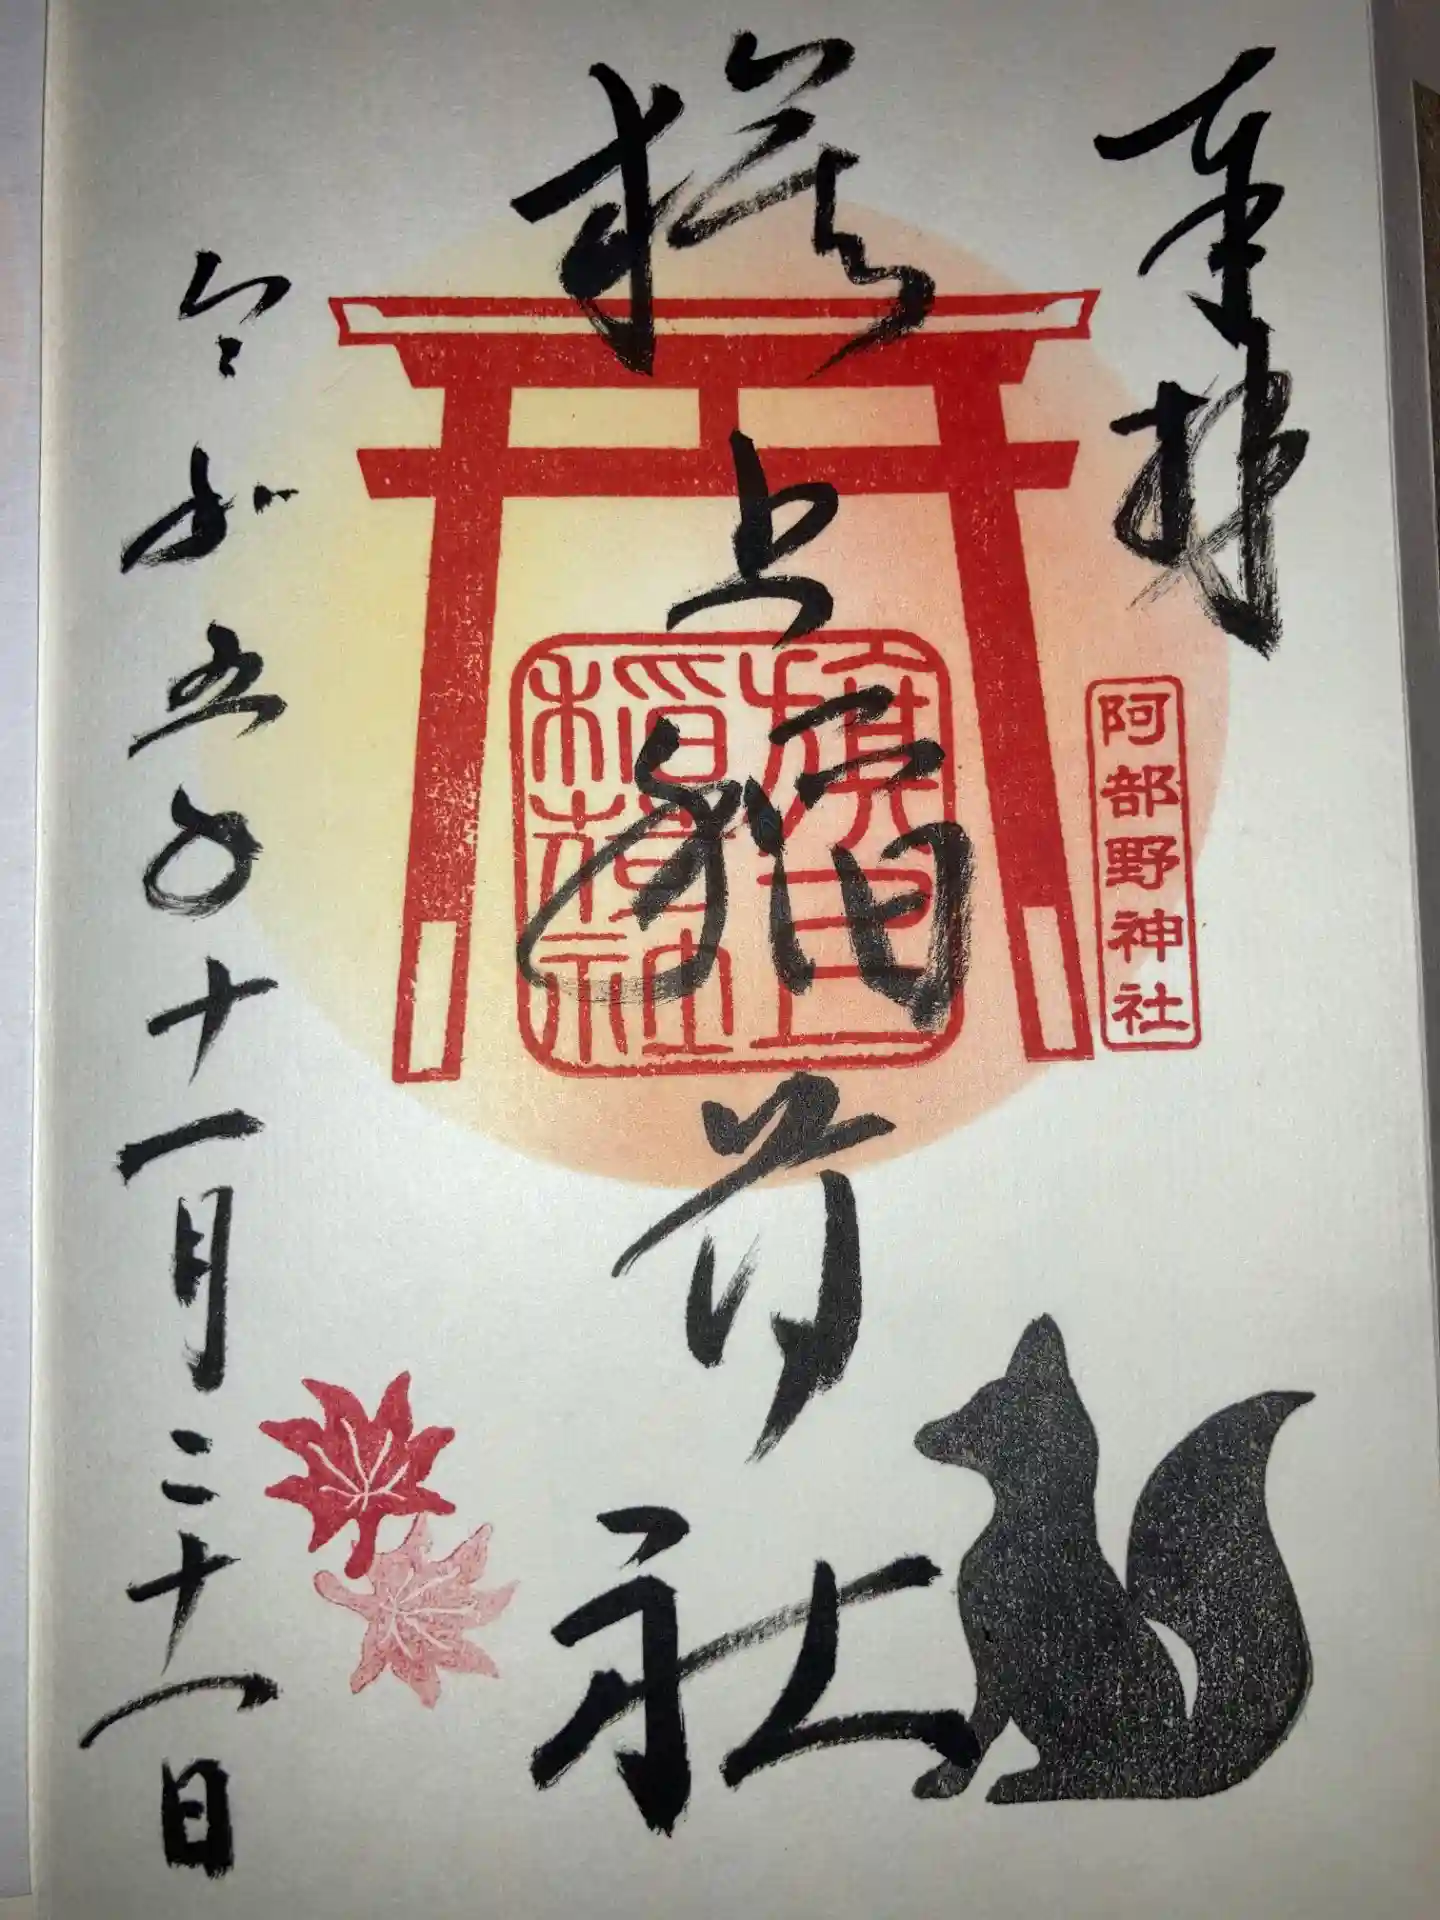 奉拝
阿部野神社
旗上稲荷社
旗上
稲荷社
令和五年十一月二十八日